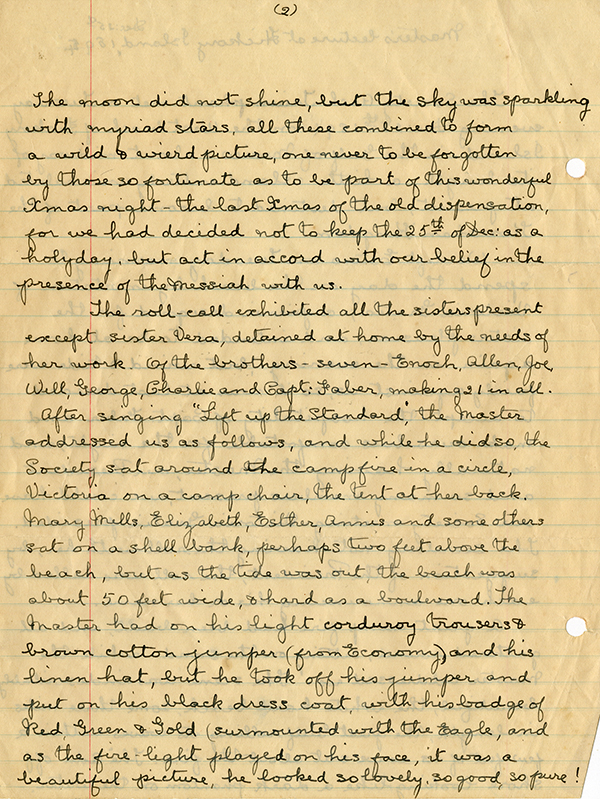 (2)
The moon did not shine, but the sky was sparkling
with myriad stars, all these combined to form
a wild & wierd picture, one never to be forgotten
by those so fortunate as to be part of this wonderful
Xmas night - the last Xmas of the old dispensation,
for we had decided not to keep the 25th of Dec: as a
holyday, but act in accord with our belief in the
presence of the Messiah with us.
The roll-call exhibited all the sisters present
except sister Vera, detained at home by the needs of
her work. Of the brothers - seven - Enoch, Allen, Joe,
Will, George, Charlie and Capt: Faber, making 21 in all.
After singing "Lift up the Standard", the Master
addressed us as follows, and while he did so, the
Society sat around the campfire in a circle,
Victoria on a camp chair, the tent at her back.
Mary Mills, Elizabeth, Esther, Annis and some others
sat on a shell bank, perhaps two feet above the
beach, but as the tide was out, the beach was
about 50 feet wide, & hard as a boulevard. The
Master had on his light corduroy trousers &
brown cotton jumper (from Economy) and his
linen hat, but he took off his jumper and
put on his black dress coat, with his badge of
Red, Green & Gold (surmounted with the Eagle, and
as the fire-light played on his face, it was a
beautiful picture, he looked so lovely, so good, so pure!